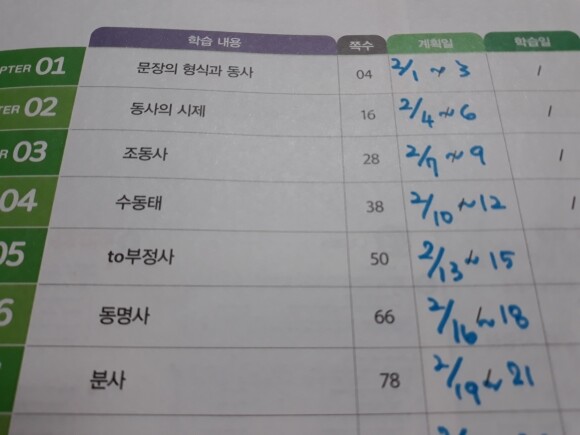 학습 내용 쪽수 계획일 학습일
PTER 01 문장의 형식과 동사 04 2/1 ~ 3 /
TER 02 동사의 시제 16 2/4 ~ 6 /
R 03 조동사 28 2/7 ~ 9 /
04 수동태 38 2/10 ~ 12 /
05 to부정사 50 2/13 ~ 15
6 동명사 66 2/16 ~ 18
분사 78 2/19 ~ 21